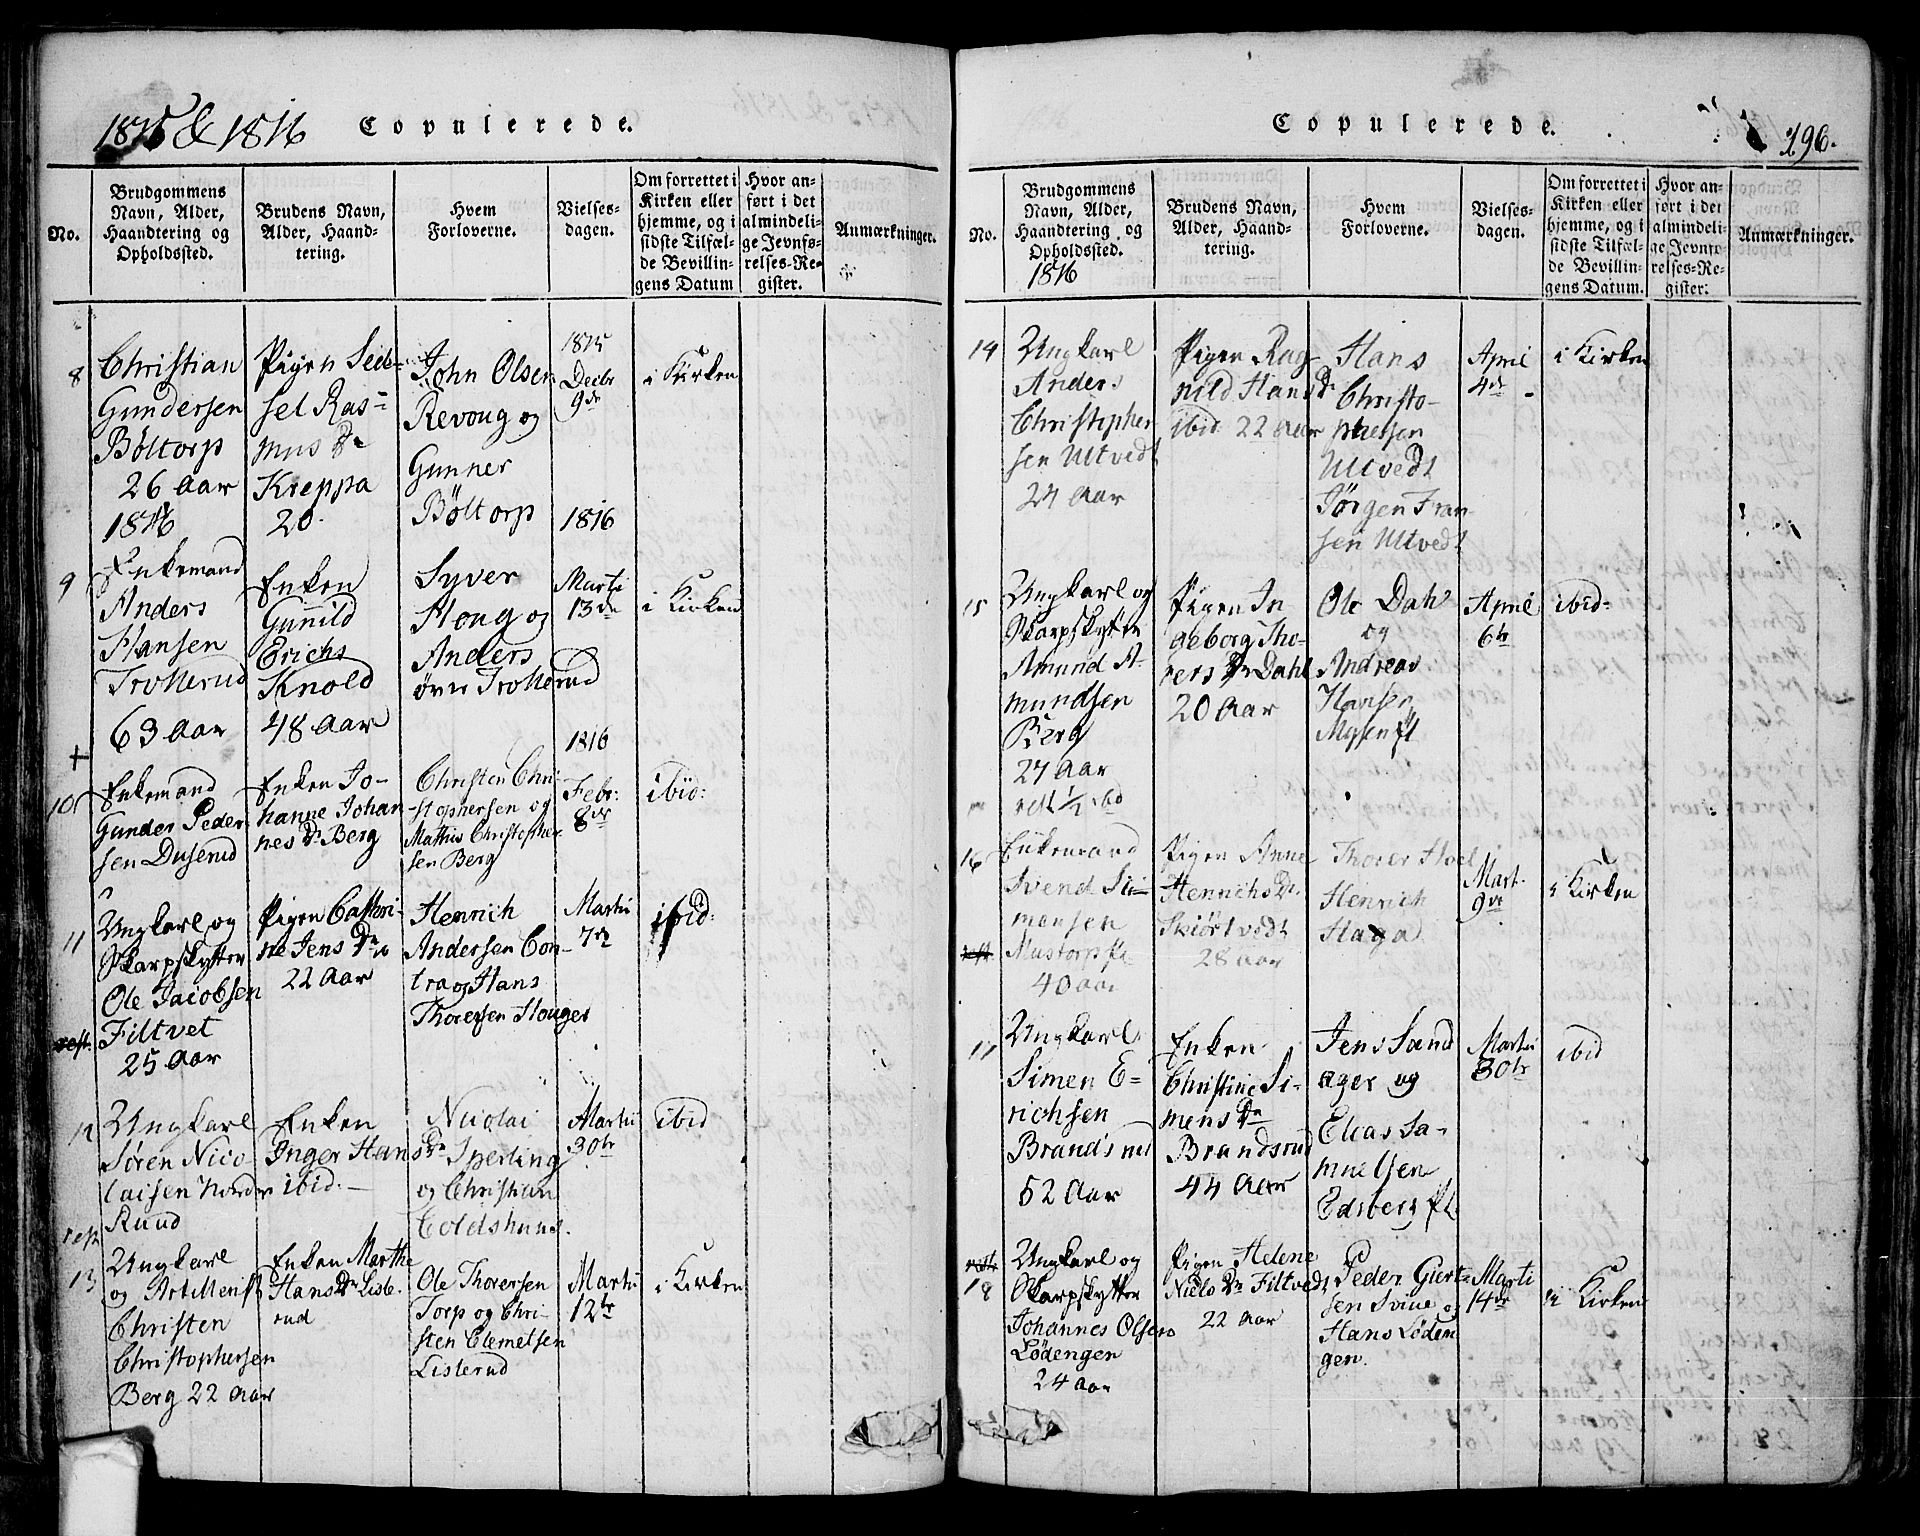 1815 & 1816 Copulerede.
No.
Brudgommens
Navn, Alder,
Haandtering og
Opholdssted.
Brudens Navn,
Alder, Haand-
tering.
Hvem
Forloverne.
Vielses-
dagen.
Om forrettet i
Kirken eller
hjemme, og i
sidste Tilfæl-
de Bevillin-
gens Datum
Hvor an-
ført i det
almindeli-
ge Jevnfø-
relses-Re-
gister.
Anmærkninger.
8
Christian
Gundersen
Böltorp
26 Aar
1816
Pigen Sede-
sel Ras-
mus Dr
Kreppa
20.
John Olsen
Revoug og
Gunner
Böltorp
1815
Decbr
9de
1816
i Kirken
9
Enkemand
Anders
Hansen
Trollerud
63 Aar
Enken
Gunild
Erichs
Knold
48 Aar
Syver
Houg og
Anders
övre Trollerud
Marti
13de
i Kirken
1816
+
10
Enkemand
Gunder Peder-
sen Duserud
Enken Jo-
hanne Johan
nes Dr Berg
Christen Chri-
stophersen og
Mathis Christopher
sen Berg
Febr:
8de
ibid:
11
Ungkarl og
Skarpskytter
Ole Jacobsen
Filtvet
25 Aar
Pigen Cathri-
ne Jens Dr
22 Aar
Henrich
Andersen Con-
tra og Hans
Thoresen Houger
Martii
7de
ibid:
rest.
12
Ungkarl
Sören Nico-
laisen Nordre
Ruud
Enken
Inger Hans Dr
ibid. —
Nicolai
Sperling
og Christian
Coldshuus.
Martii
30te
ibid
rest
13
Ungkarl
og Artillerist
Christen
Christophersen
Berg 22 Aar
Enken Marthe
Hans Dr Lisle-
rud
Ole Thoresen
Torp og Chri-
sten Clemetsen
Lislerud
Martii
12te
i Kirken
Copulerede. 196.
No.
Brudgommens
Navn, Alder,
Haandtering og
Opholdssted.
1816
Brudens Navn,
Alder, Haand-
tering.
Hvem
Forloverne.
Vielses-
dagen.
Om forrettet i
Kirken eller
hjemme, og i
sidste Tilfæl-
de Bevillin-
gens Datum.
Hvor an-
ført i det
almindeli-
ge Jevnfø-
relses-Re-
gister.
Anmærkninger.
14
Ungkarl
Anders
Christopher
sen Ultvedt
24 Aar
Pigen Rag-
nild Hans Dr
ibid 22 Aar
Hans
Christo-
phersen
Ultvedt
Jörgen Fran-
sen Ultvedt
April
4de
i Kirken
15
Ungkarl og
Skarpskytter
Amund A-
mundsen
Berg
27 Aar
rest 1/2 ibd
Pigen In
geborg Tho-
rers Dr Dahl
20 Aar
Ole Dahl
og
Andreas
Hansen
Mysen Pl
April
6te
ibid:
16
Enkemand
Svend Si-
mensen
Mustorp Pl.
40 aar
Pigen Anne
Henrichs Dr
Skiörtvedt
28 aar
Thorer Hoel
Henrich
Haga
Mart.
9de
i Kirken
rest
17
Ungkarl
Simen E-
richsen
Brandsrud
52 Aar
Enken
Christine Si-
mens Dr
Brandsrud
44 Aar
Jens Sand
ager og
Elias Sa-
muelsen
Edsberg Pl.
Martii
30te
ibid
rest
18
Ungkarl og
Skarpskytter
Johannes Olsen
Lödengen
24 Aar
Pigen Helene
Niels Dr Filtvedt
22 Aar
Peder Giert-
sen Svine og
Hans Löden
gen.
Marti
14de
i Kirken